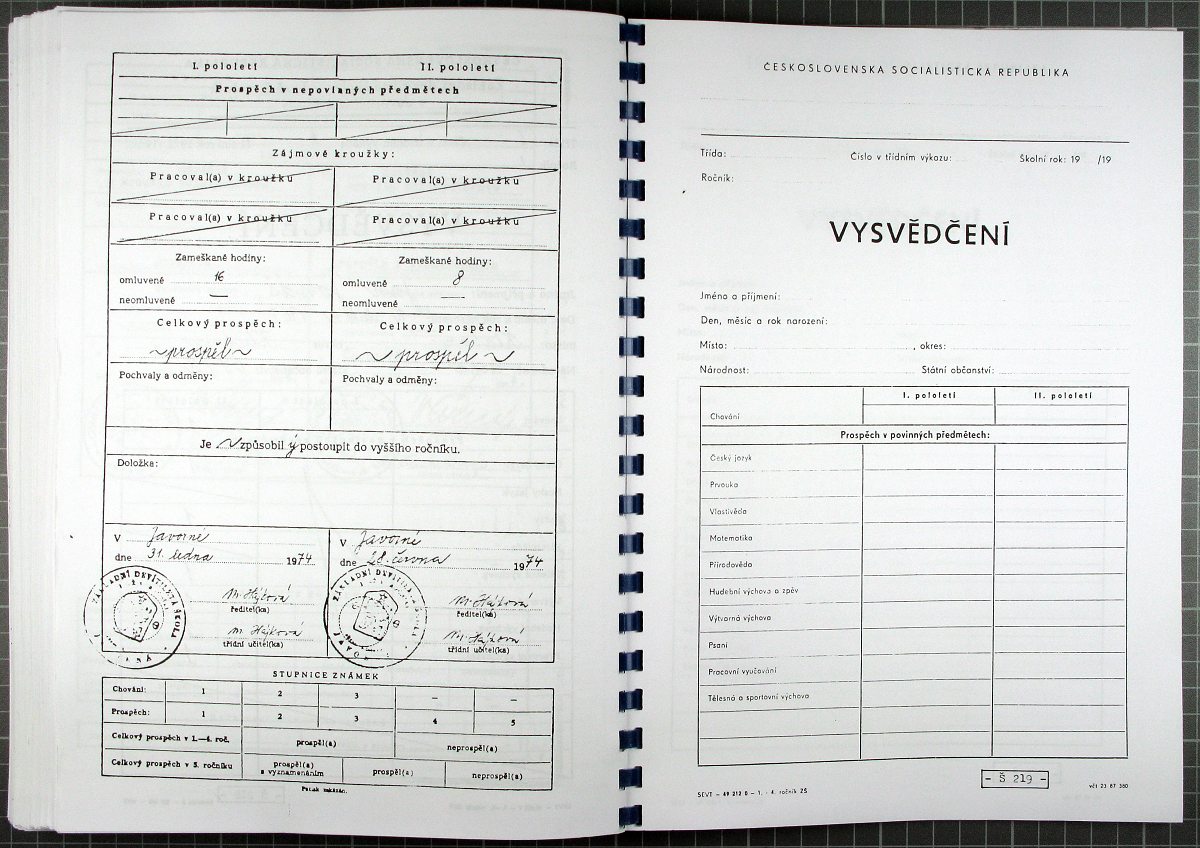 I. pololetí II. pololetí
Prospěch v nepovinných předmětech
Zájmové kroužky:
Pracoval(a) v kroužku Pracoval(a) v kroužku
Pracoval(a) v kroužku Pracoval(a) v kroužku
Zameškané hodiny: Zameškané hodiny:
omluvené 16 omluvené 8
neomluvené — neomluvené —
Celkový prospěch: Celkový prospěch:
~prospěl~ ~prospěl~
Pochvaly a odměny: Pochvaly a odměny:
Je ~ způsobilý postoupit do vyššího ročníku.
Doložka:
V Javorné V Javorné
dne 31. ledna 1974 dne 28. června 1974
ZÁKLADNÍ DEVÍTILETÁ ŠKOLA ZÁKLADNÍ DEVÍTILETÁ
M. Hájková M. Hájková
ředitel(ka) ředitel(ka)
M. Hájková M. Hájková
třídní učitel(ka) třídní učitel(ka)
STUPNICE ZNÁMEK
Chování: 1 2 3 — —
Prospěch: 1 2 3 4 5
Celkový prospěch v 1.—4. roč. prospěl(a) neprospěl(a)
Celkový prospěch v 5. ročníku prospěl(a) s vyznamenáním prospěl(a) neprospěl(a)
Potisk zakázán.
ČESKOSLOVENSKÁ SOCIALISTICKÁ REPUBLIKA
Třída: Číslo v třídním výkazu: Školní rok: 19 /19
Ročník:
VYSVĚDČENÍ
Jméno a příjmení:
Den, měsíc a rok narození:
Místo: , okres:
Národnost: Státní občanství:
I. pololetí II. pololetí
Chování
Prospěch v povinných předmětech:
Český jazyk
Prvouka
Vlastivěda
Matematika
Přírodověda
Hudební výchova a zpěv
Výtvarná výchova
Psaní
Pracovní vyučování
Tělesná a sportovní výchova
- Š 219 -
SEVT – 49 212 0 – 1. - 4. ročník ZŠ
včt 23 87 380